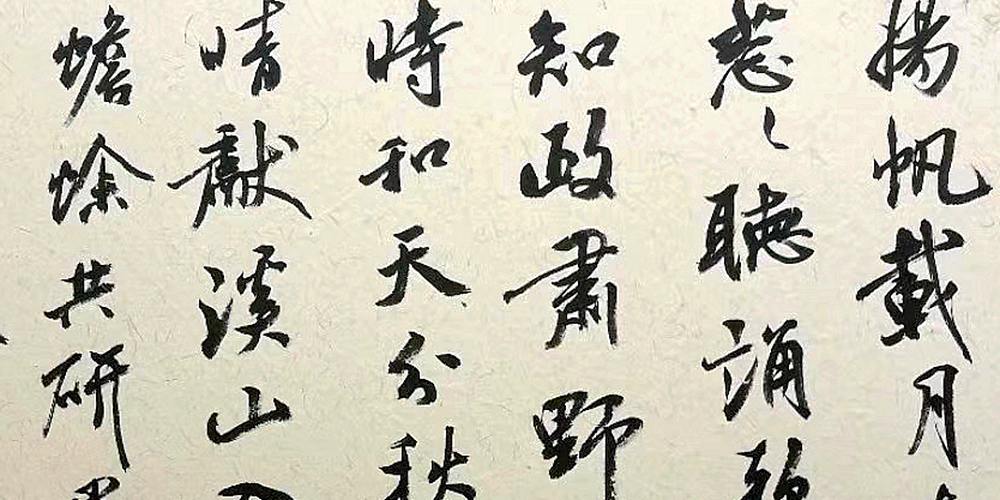 揚帆載月
葱々聽誦
知政肅野
時和天分秋
晴獻溪山
蟾蜍共研